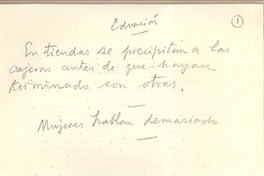 Educación
1
En tiendas se precipitan a las
cajeras antes de que hayan
terminado con otras.
Mujeres hablan demasiado